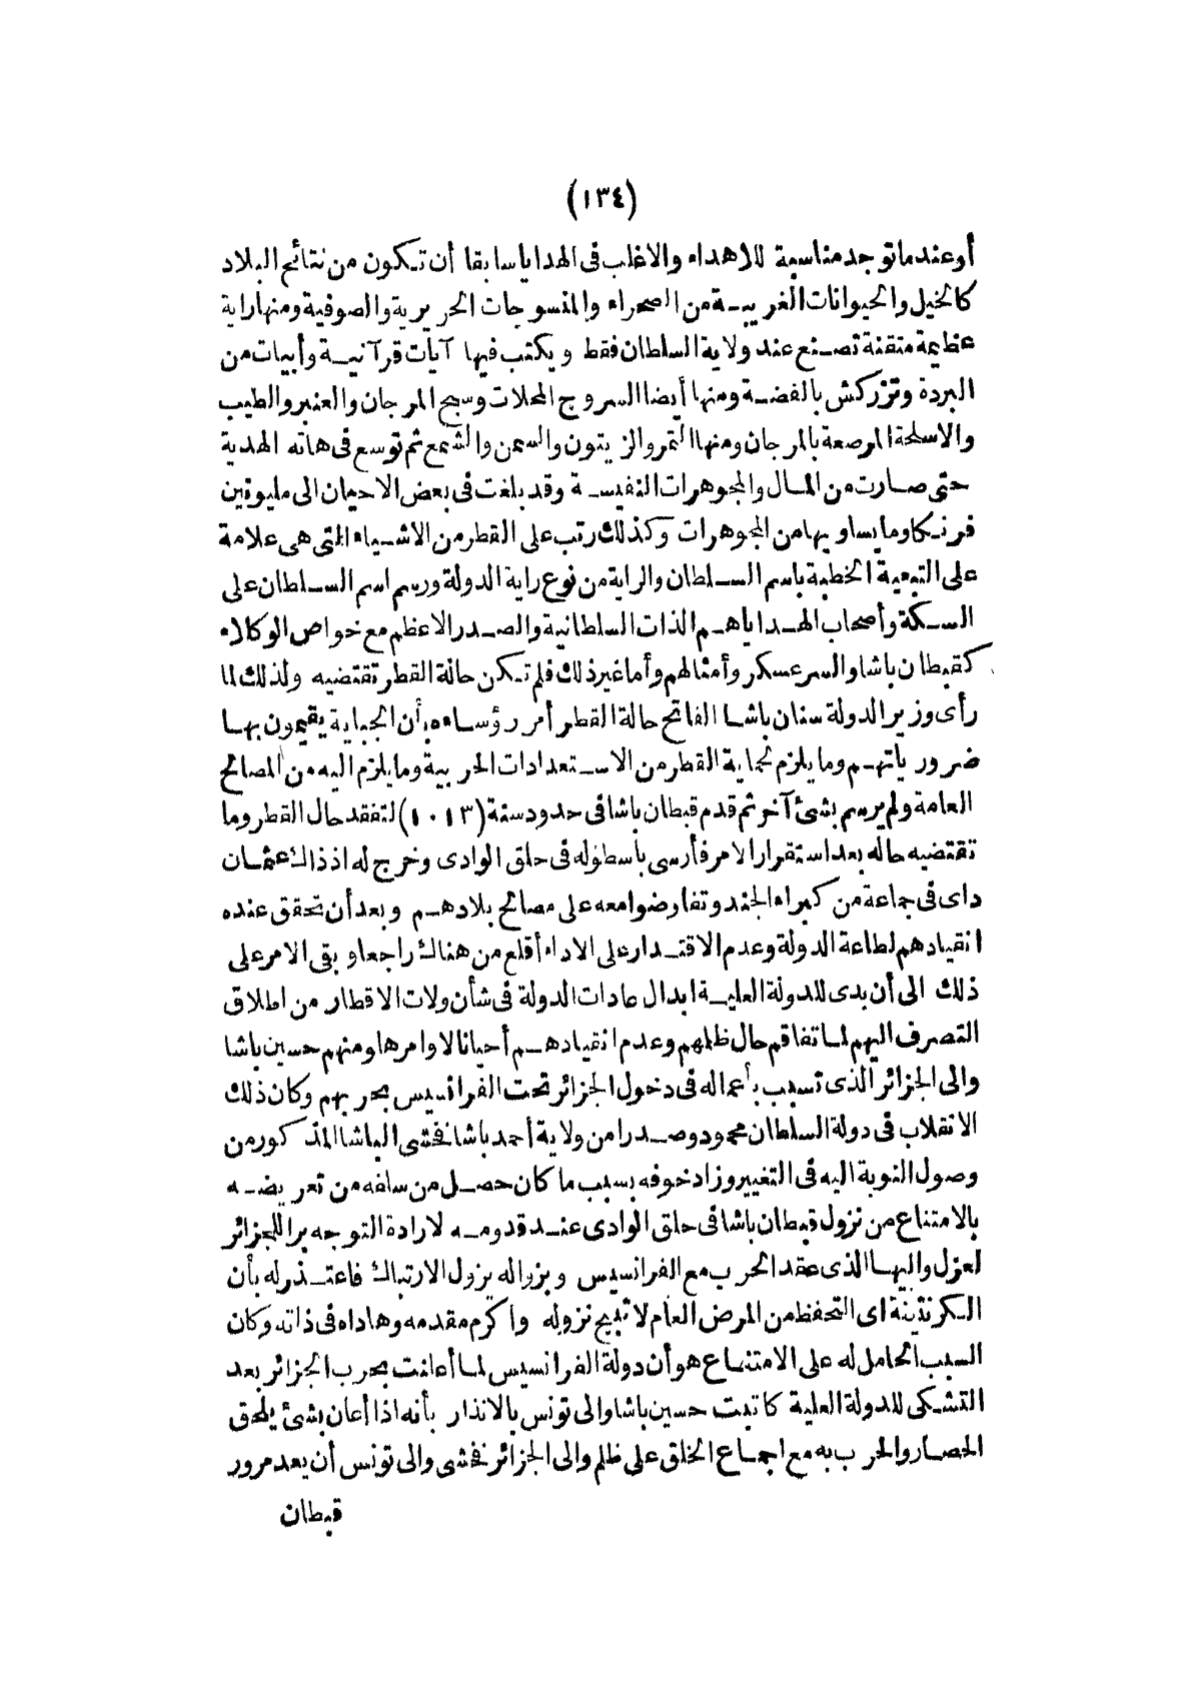 (١٣٤)
أو عند ما توجد مناسبة للاهداء والاغلب فى الهدايا سابقا أن تكون من نتائج البلاد
كالخيل والحيوانات الغريبة من الصحراء والمنسوجات الحريرية والصوفية ومنها راية
عظيمة متقنة تصنع عند ولاية السلطان فقط ويكتب فيها آيات قرآنية وأبيات من
البردة وتزركش بالفضة ومنها أيضا السروج المحلات وسبح المرجان والعنبر والطيب
والاسلحة المرصعة بالمرجان ومنها التمر والزيتون والسمن والشمع ثم توسع فى هاته الهدية
حتى صارت من المال والمجوهرات النفيسة وقد بلغت فى بعض الاحيان الى مليونين
فرنكا وما يساويها من المجوهرات وكذلك رتب على القطر من الاشياء التى هى علامة
على التبعية الخطبة باسم السلطان والراية من نوع راية الدولة ورسم اسم السلطان على
السكة وأصحاب الهدايا هم الذات السلطانية والصدر الاعظم مع خواص الوكلاء
كقبطان باشا والسر عسكر وأمثالهم وأما غير ذلك فلم تكن حالة القطر تقتضيه ولذلك لما
رأى وزير الدولة سنان باشا الفاتح حالة القطر أمر رؤساءه بأن الجباية يقيمون بها
ضرورياتهم وما يلزم لحماية القطر من الاستعدادات الحربية وما يلزم اليه من المصالح
العامة ولم يرسم بشئ آخر ثم قدم قبطان باشا فى حدود سنة (١٠١٣) لتفقد حال القطر وما
تقتضيه حاله بعد استقرار الامر فأرسى بأسطوله فى حلق الوادى وخرج له اذ ذاك عثمان
داى فى جماعة من كبراء الجند وتفاوضوا معه على مصالح بلادهم وبعد أن تحقق عنده
انقيادهم لطاعة الدولة وعدم الاقتدار على الاداء أقلع من هناك راجعا وبقى الامر على
ذلك الى أن بدى للدولة العلية ابدال عادات الدولة فى شأن ولات الاقطار من اطلاق
التصرف اليهم لما تفاقم حال ظلمهم وعدم انقيادهم أحيانا لاوامرها ومنهم حسين باشا
والى الجزائر الذى تسبب بأعماله فى دخول الجزائر تحت الفرانسيس بحربهم وكان ذلك
الانقلاب فى دولة السلطان محمود وصدرا من ولاية أحمد باشا فخشى الباشا المذكور من
وصول النوبة اليه فى التغيير وزاد خوفه بسبب ما كان حصل من سلفه من تعريضه
بالامتناع من نزول قبطان باشا فى حلق الوادى عند قدومه لارادة التوجه برا للجزائر
لعزل واليها الذى عقد الحرب مع الفرانسيس وبزواله يزول الارتباك فاعتذر له بأن
الكرنتينة اى التحفظ من المرض العام لا تبيح نزوله واكرم مقدمه وهاداه فى ذاته وكان
السبب الحامل له على الامتناع هو أن دولة الفرانسيس لما أعلنت بحرب الجزائر بعد
التشكى للدولة العلية كاتبت حسين باشا والى تونس بالانذار بأنه اذا أعان بشئ يلحق
الحصار والحرب به مع اجماع الخلق على ظلم والى الجزائر فخشى والى تونس أن بعد مرور
قبطان